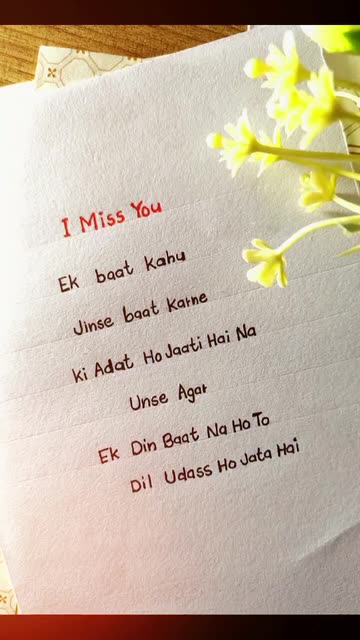 I Miss You
Ek baat Kahu
Jinse baat Karne
ki Adat Ho Jaati Hai Na
Unse Agar
Ek Din Baat Na Ho To
Dil Udass Ho Jata Hai